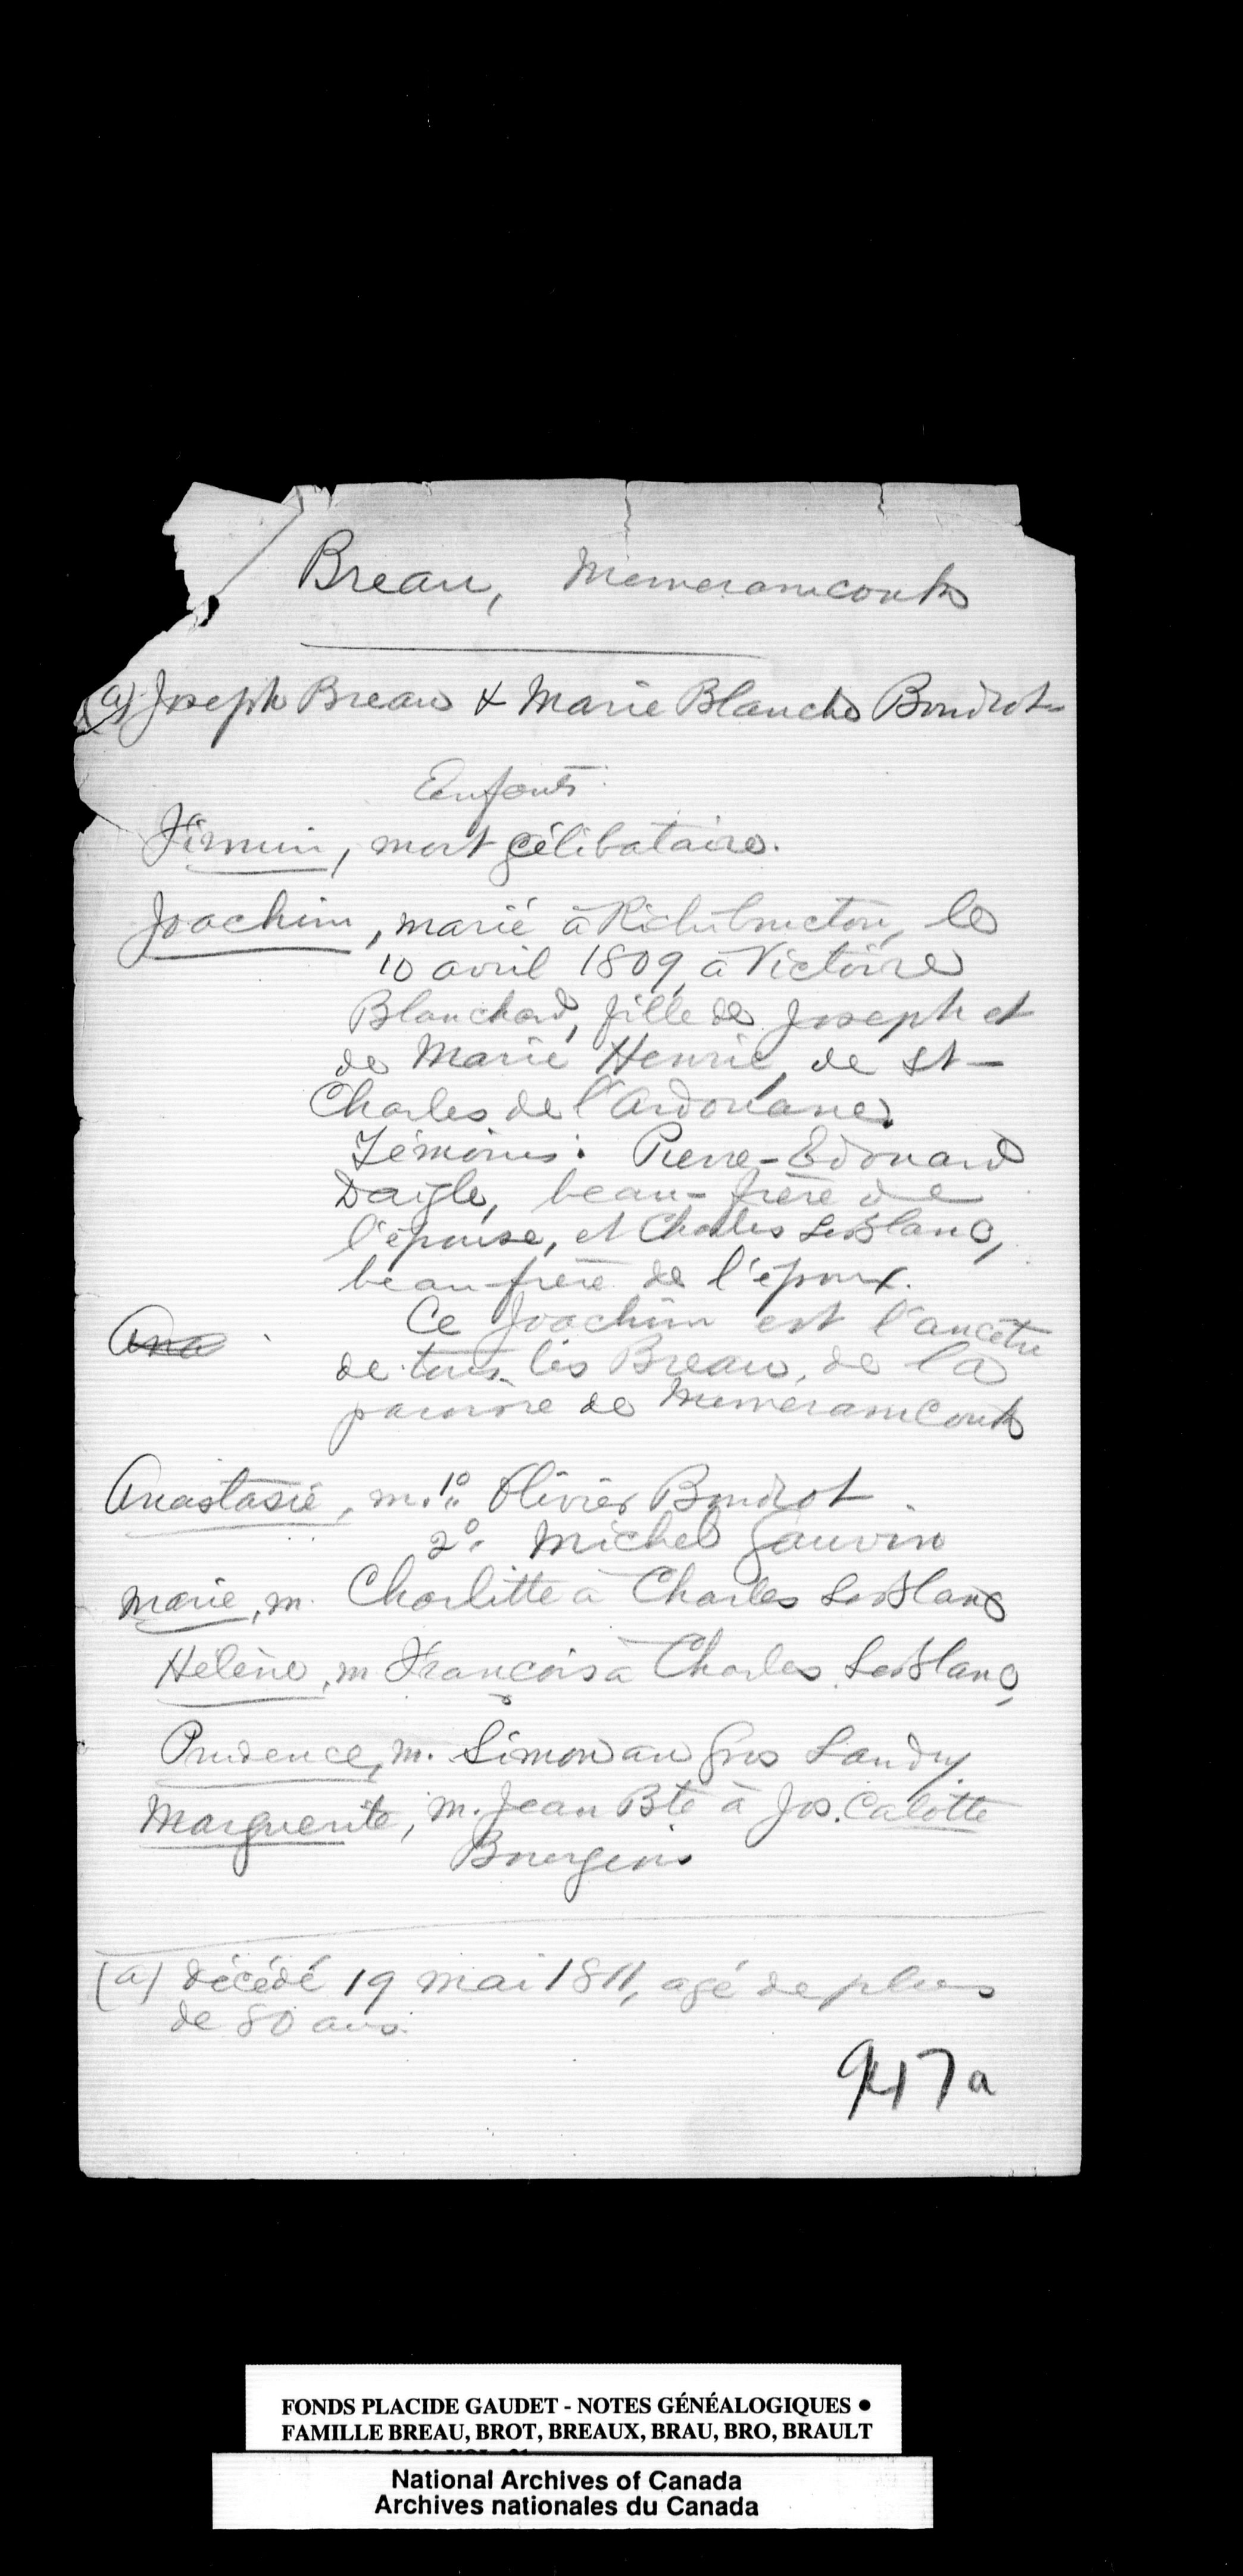 Breau, Memeramcouk
(a) Joseph Breau & Marie Blanche Boudrot
Enfants
Firmin, mort célibataire.
Joachim, marié à Richibouctou, le
10 avril 1809, à Victoire
Blanchard, fille de Joseph et
de Marie Henrie, de St-
Charles de l'Ardouane.
Témoins: Pierre-Edouard
Daigle, beau-frère de
l'épouse, et Charles LeBlanc,
beau-frère de l'époux.
Ce Joachim est l'ancêtre
Ana
de tous les Breau, de la
paroisse de Memeramcouk
Anastasie, m. 1º: Olivier Boudrot.
2º: Michel Gauvin
Marie, m. Charlitte à Charles LeBlanc
Hélène, m François à Charles LeBlanc,
Prudence, m. Simon au Gros Landry
Marguerite, m. Jean Bte à Jos. Calotte
Bourgeois
(a) décédé 19 mai 1811, agé de plus
de 80 ans.
947a
FONDS PLACIDE GAUDET - NOTES GÉNÉALOGIQUES ●
FAMILLE BREAU, BROT, BREAUX, BRAU, BRO, BRAULT
National Archives of Canada
Archives nationales du Canada